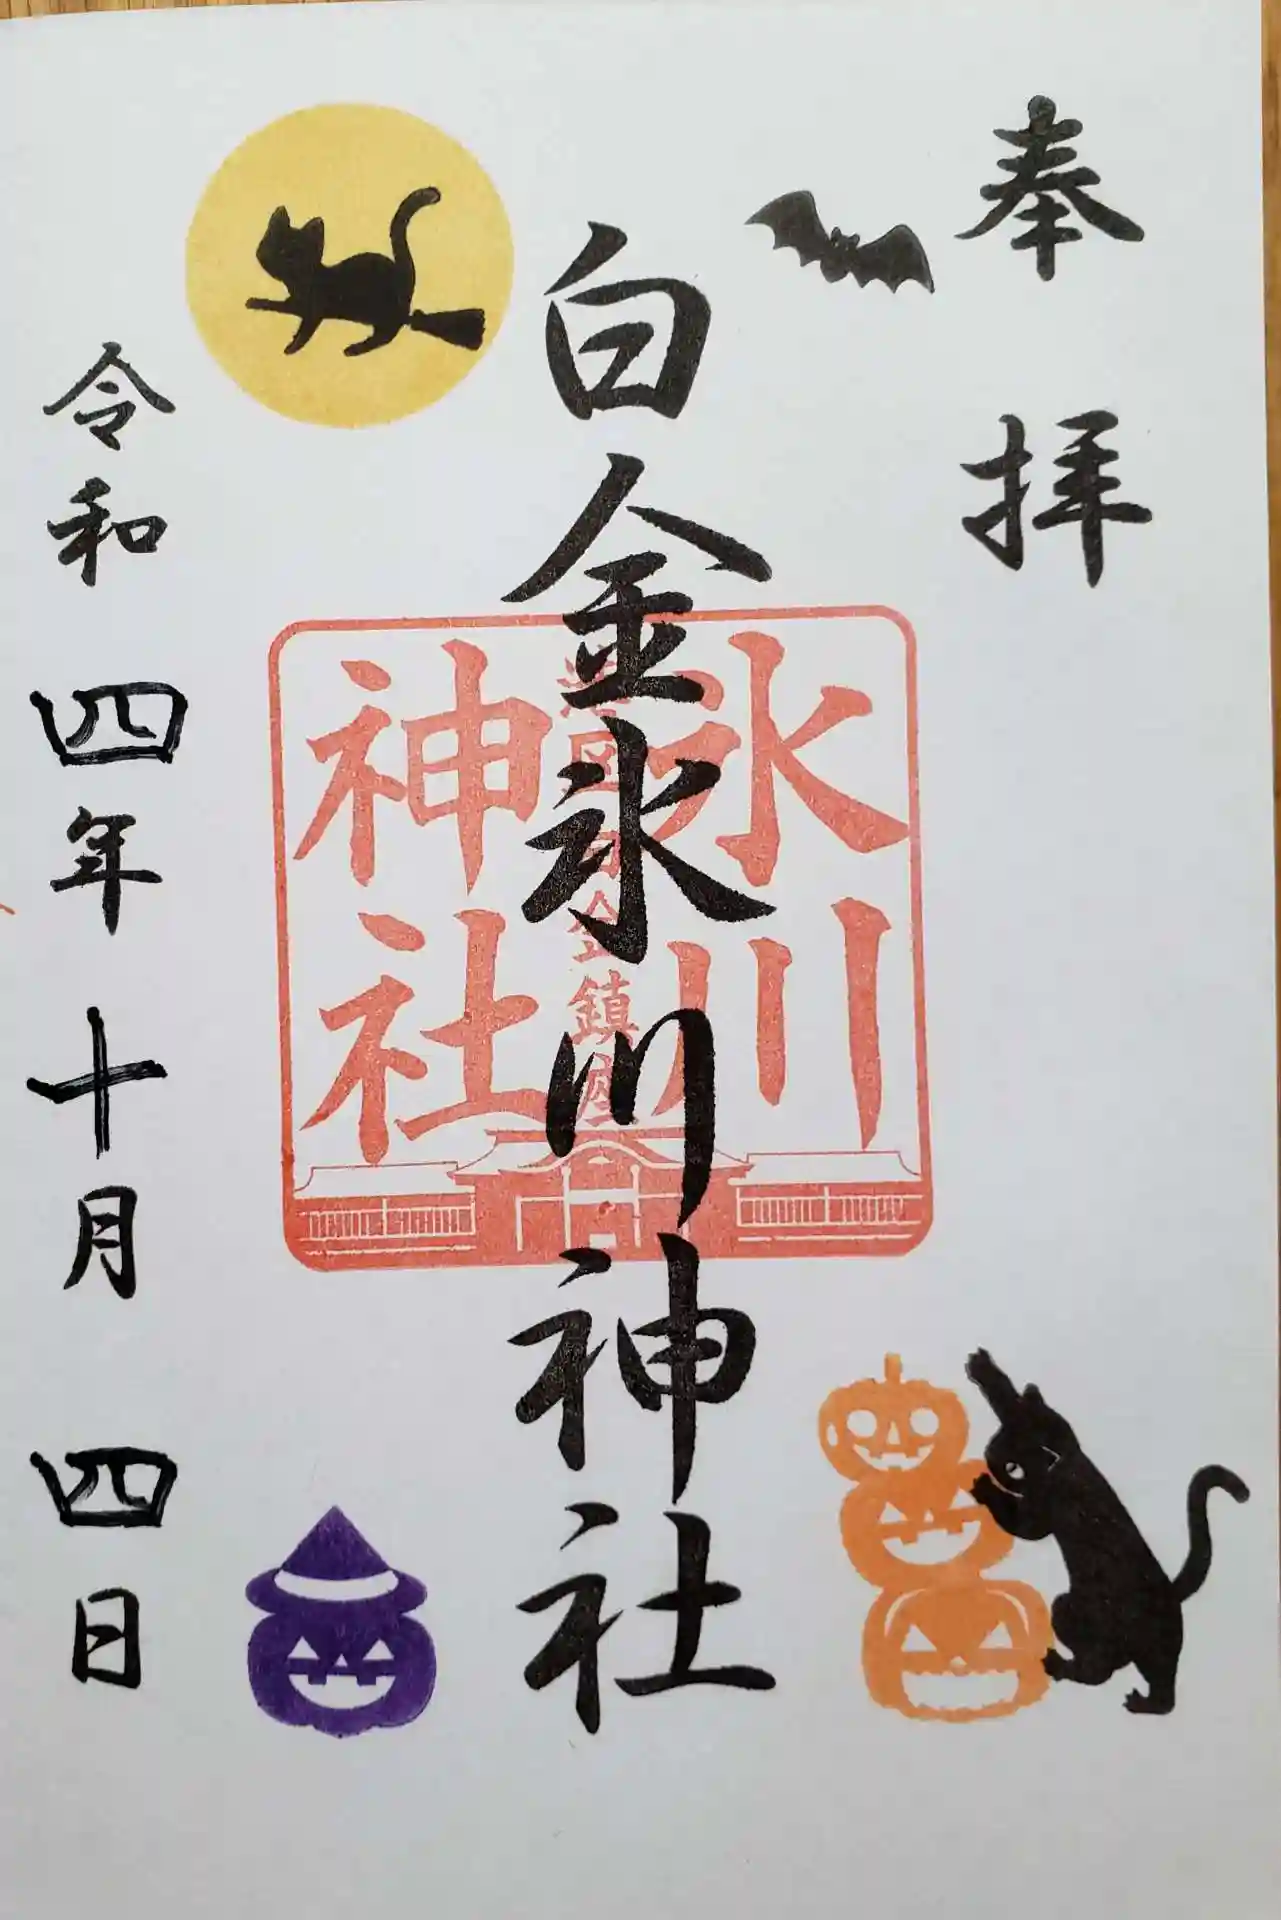 奉拝
白金氷川神社
氷川
港区白金鎮座
神社
令和四年十月四日